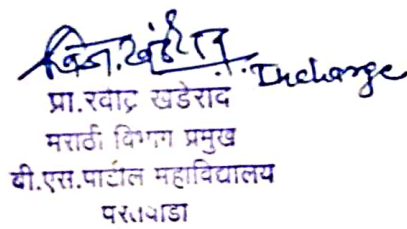 Incharge
प्रा.रवींद्र खडेराव
मराठी विभाग प्रमुख
बी.एस.पाटील महाविद्यालय
परतवाडा